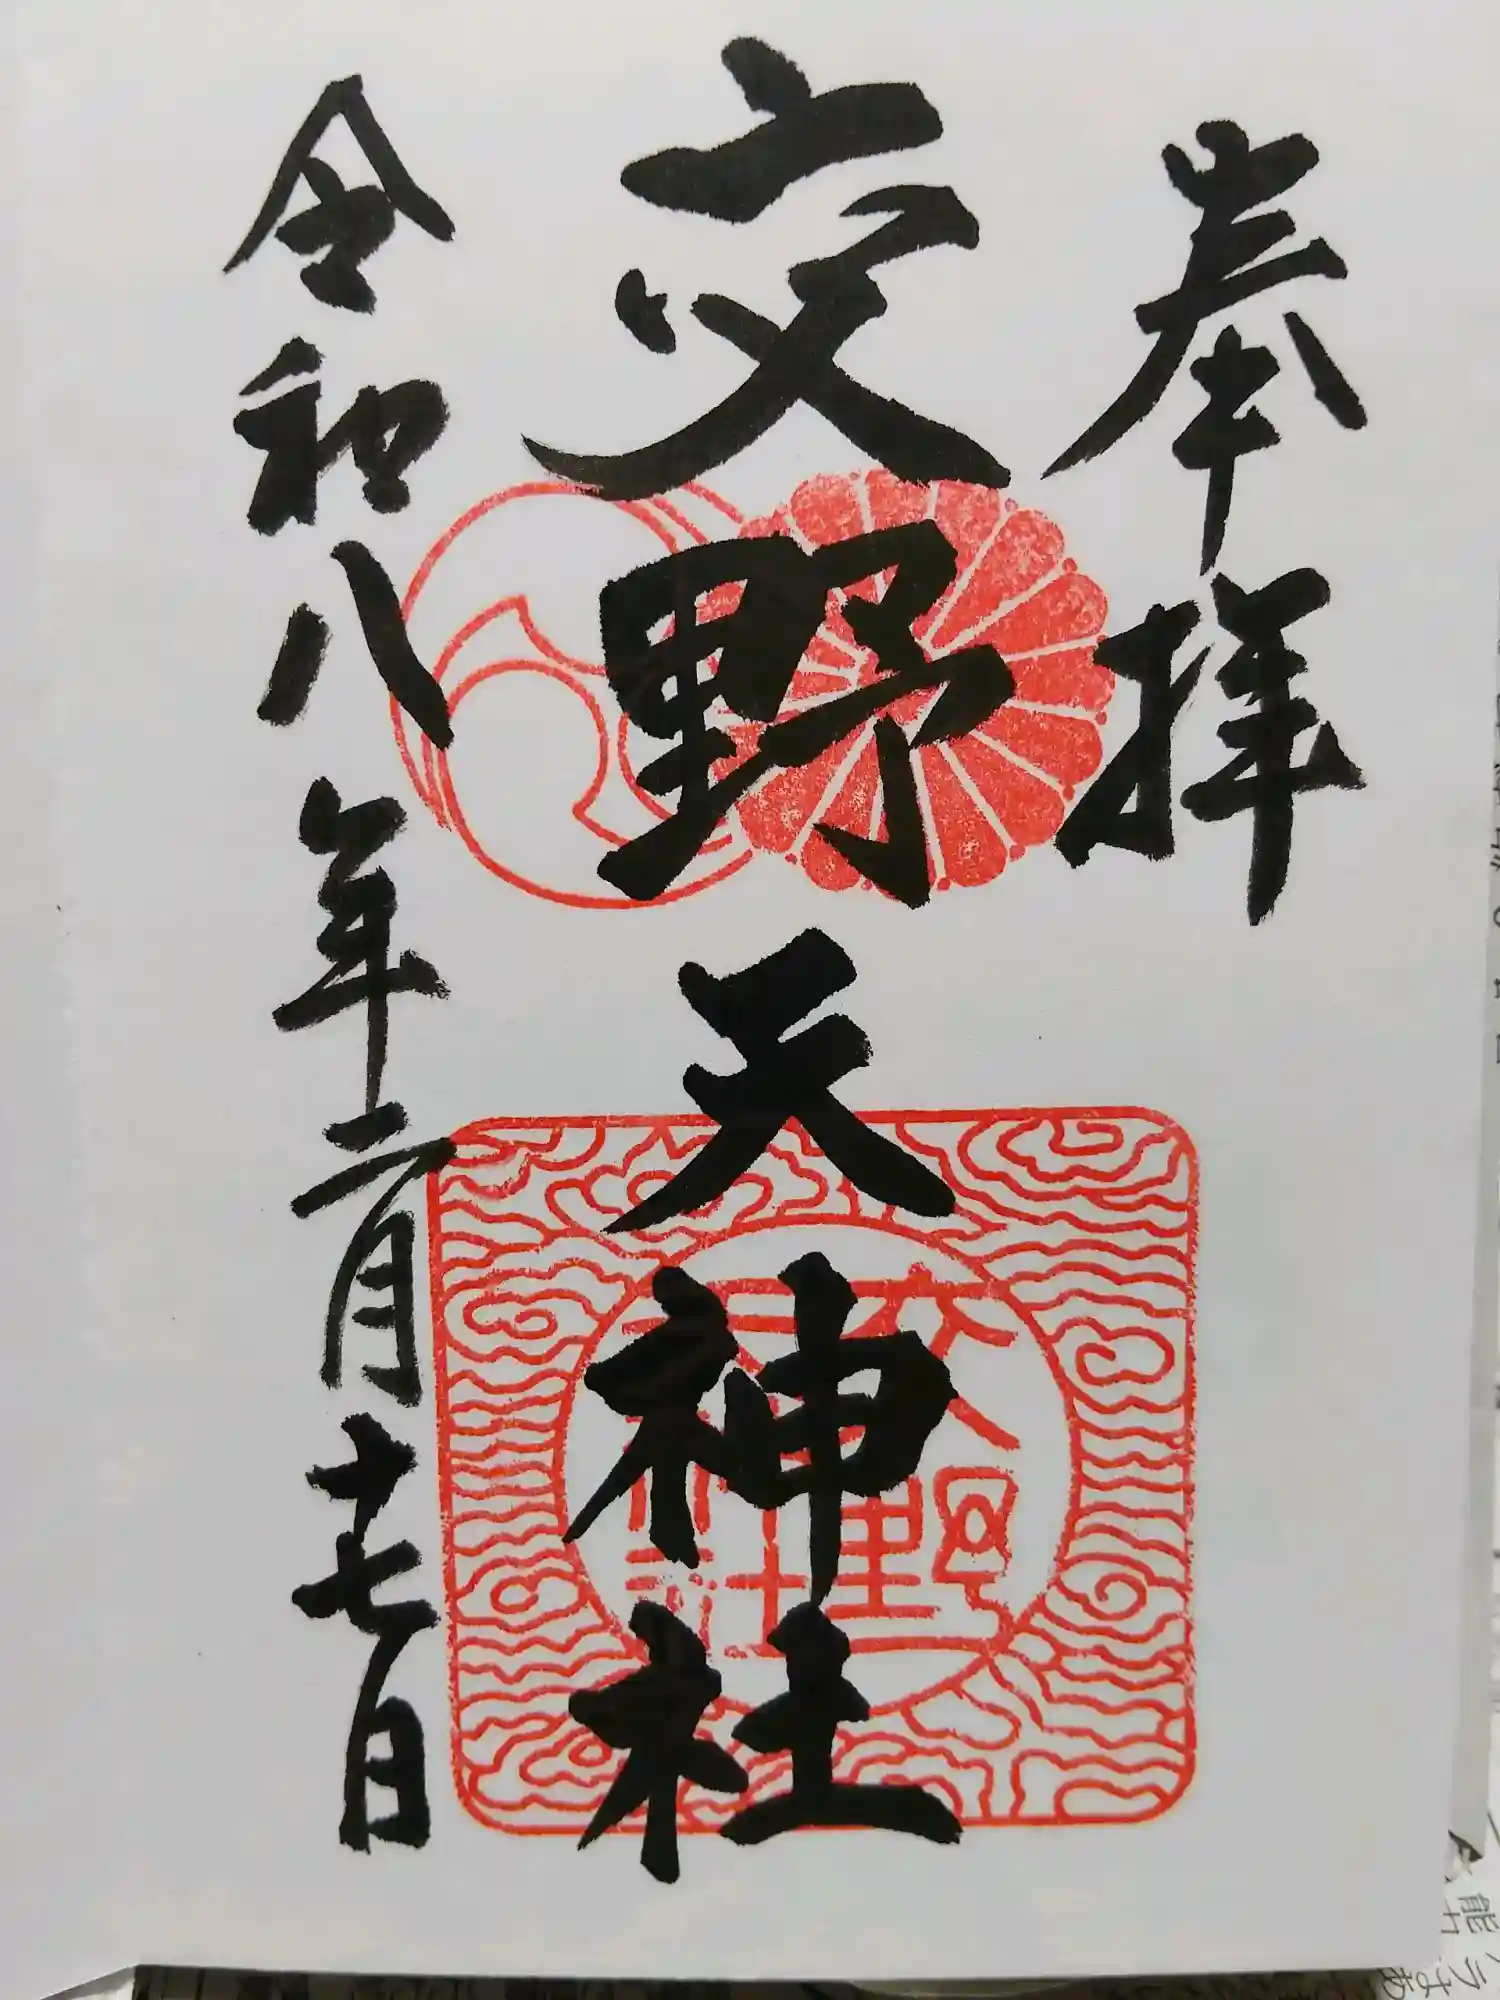 奉拝
交野天神社
令和八年二月十七日